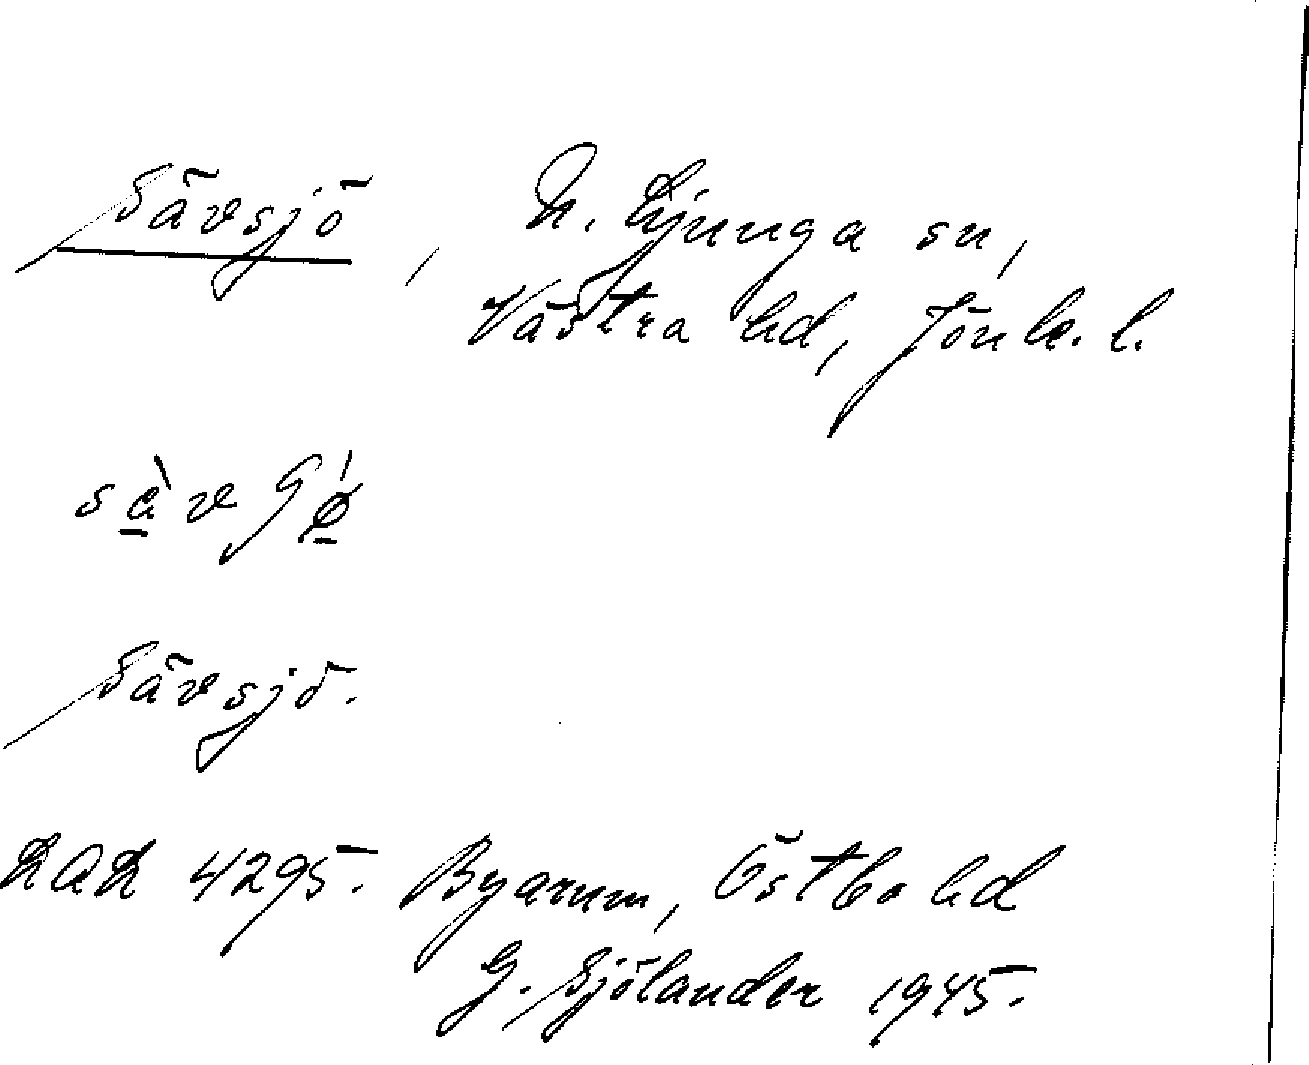 Sävsjö, N. Ljunga sn,
Västra hd, Jönk. l.
Sävsjö.
4295. Byarum, Östbo hd
G. Sjölander 1945.